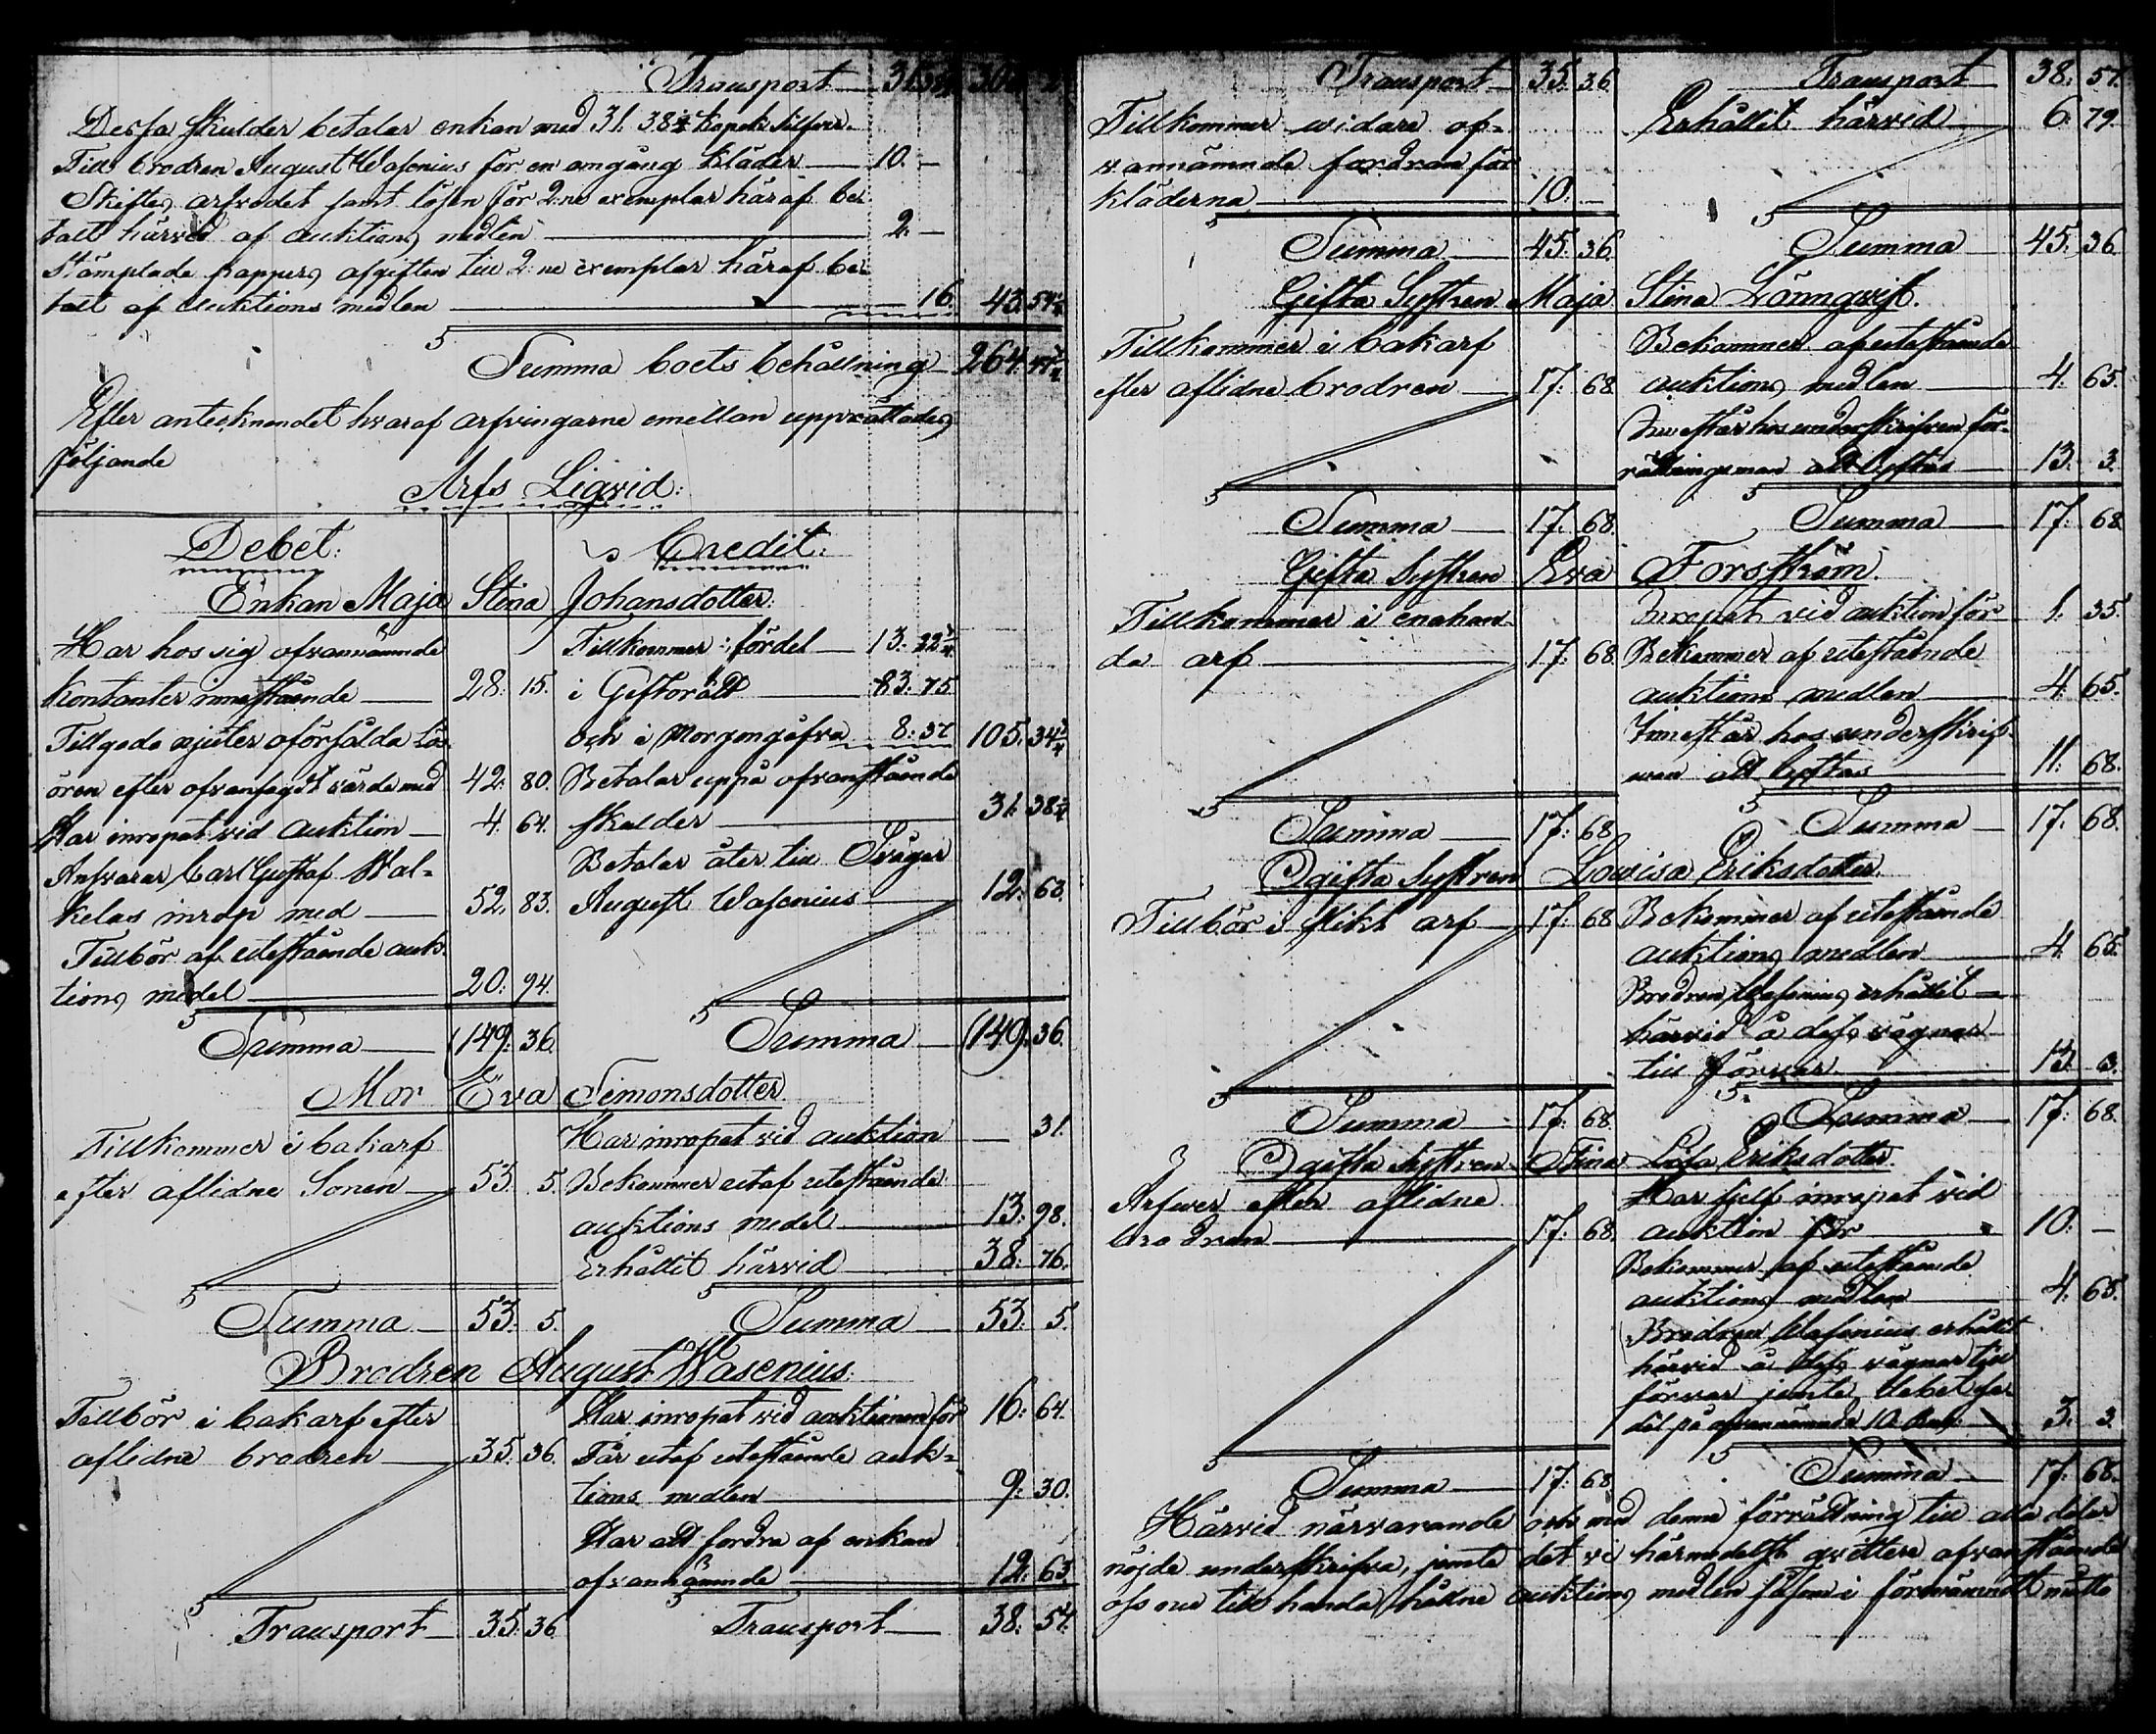 Transport 31. 38¾ 
Dessa skulder betalar enkan med 31. 38¾ kopek silfver.
Till brodren August Wasenius för en omgång kläder 10. –
Skiftes arfvodet samt lösen för 2:ne exemplar häraf be-
talt härvid af auktions medlen 2. –
Stämplade pappers afgiften till 2:ne exemplar häraf be-
talt af auktions medlen 16. 43. 54¾
Summa boets behållning 264.
Efter antecknandet hvaraf arfvingarne emellan upprättades
följande
Arfs Liqvid:
Debet: Credit:
Enkan Maja Stina Johansdotter.
Har hos sig ofvannämnde
kontanter innestående 28. 15.
Tillgodo njuter oförsålda lös-
ören efter ofvansagdt värde med 42. 80.
Har inropat vid auktion 4. 64.
Ansvarar Carl Gustaf Wal-
kelas inrop med 52. 83.
Tillbör af utestående auk-
tions medel 20. 94.
Summa 149. 36.
Tillkommer i fördel 13. 22¾
i Giftorätt 83. 75.
och i Morgongåfva 8. 37 105. 34¾
Betalar uppå ofvanstående
skulder 31. 38¾
Betalar åter till Svåger
August Wasenius 12. 63.
Summa 149. 36.
Mor Eva Simonsdotter.
Tillkommer i bakarf
efter aflidne Sonen 53. 5.
Summa 53. 5.
Har inropat vid auktion – 31.
Bekommer utaf utestående
auktions medel 13. 98.
Erhållit härvid 38. 76.
Summa 53. 5.
Brodren August Wasenius.
Tillbör i bakarf efter
aflidne brodren 35. 36.
Transport 35. 36.
Har inropat vid auktionen för 16. 64.
Får utaf utestående auk-
tions medlen 9. 30.
Har att fordra af enkan
ofvannämnde 12. 63.
Transport 38. 57.
Transport 35. 36.
Tillkommer widare of-
vannämnde fordran för
kläderna 10. –
Summa 45. 36.
Transport 38. 57.
Erhållit härvid 6. 79.
Summa 45. 36.
Gifta Systren Maja Stina Lönnqvist.
Tillkommer i bakarf
efter aflidne brodren 17. 68.
Summa 17. 68.
Bekommer af utestående
auktions medlen 4. 65.
Innestår hos underskrifven för-
rättningsman att lyftas 13. 3.
Summa 17. 68.
Gifta Systren Eva Forsström.
Tillkommer i enahan-
da arf 17. 68.
Summa 17. 68.
Inropat vid auktion för 1. 35.
Bekommer af utestående
auktions medlen 4. 65.
Innestår hos underskrif-
ven att lyftas 11. 68.
Summa 17. 68.
Ogifta Systren Lovisa Eriksdotter.
Tillbör i slikt arf 17. 68.
Summa 17. 68.
Bekommer af utestående
auktions medlen 4. 65.
Brodren Wasenius erhållit
härvid å dess vägnar
till förvar 13. 3.
Summa 17. 68.
Ogifta Systren Stina Lisa Eriksdotter.
Arfver efter aflidne
brodren 17. 68.
Summa 17. 68.
Har sjelf inropat vid
auktion för 10. –
Bekommer af utestående
auktions medlen 4. 65.
Brodren Wasenius erhållit
härvid å dess vägnar till
förvar jemte debet
på ofvannämnde 10 Rub. 3. 3.
Summa 17. 68.
Härvid närvarande och med denna förrättning till alla delar
nöjde underskrifva, jemte det vi härmedelst qvittera ofvanstående
oss nu till handa auktions medlen såsom i förenämndt måtto